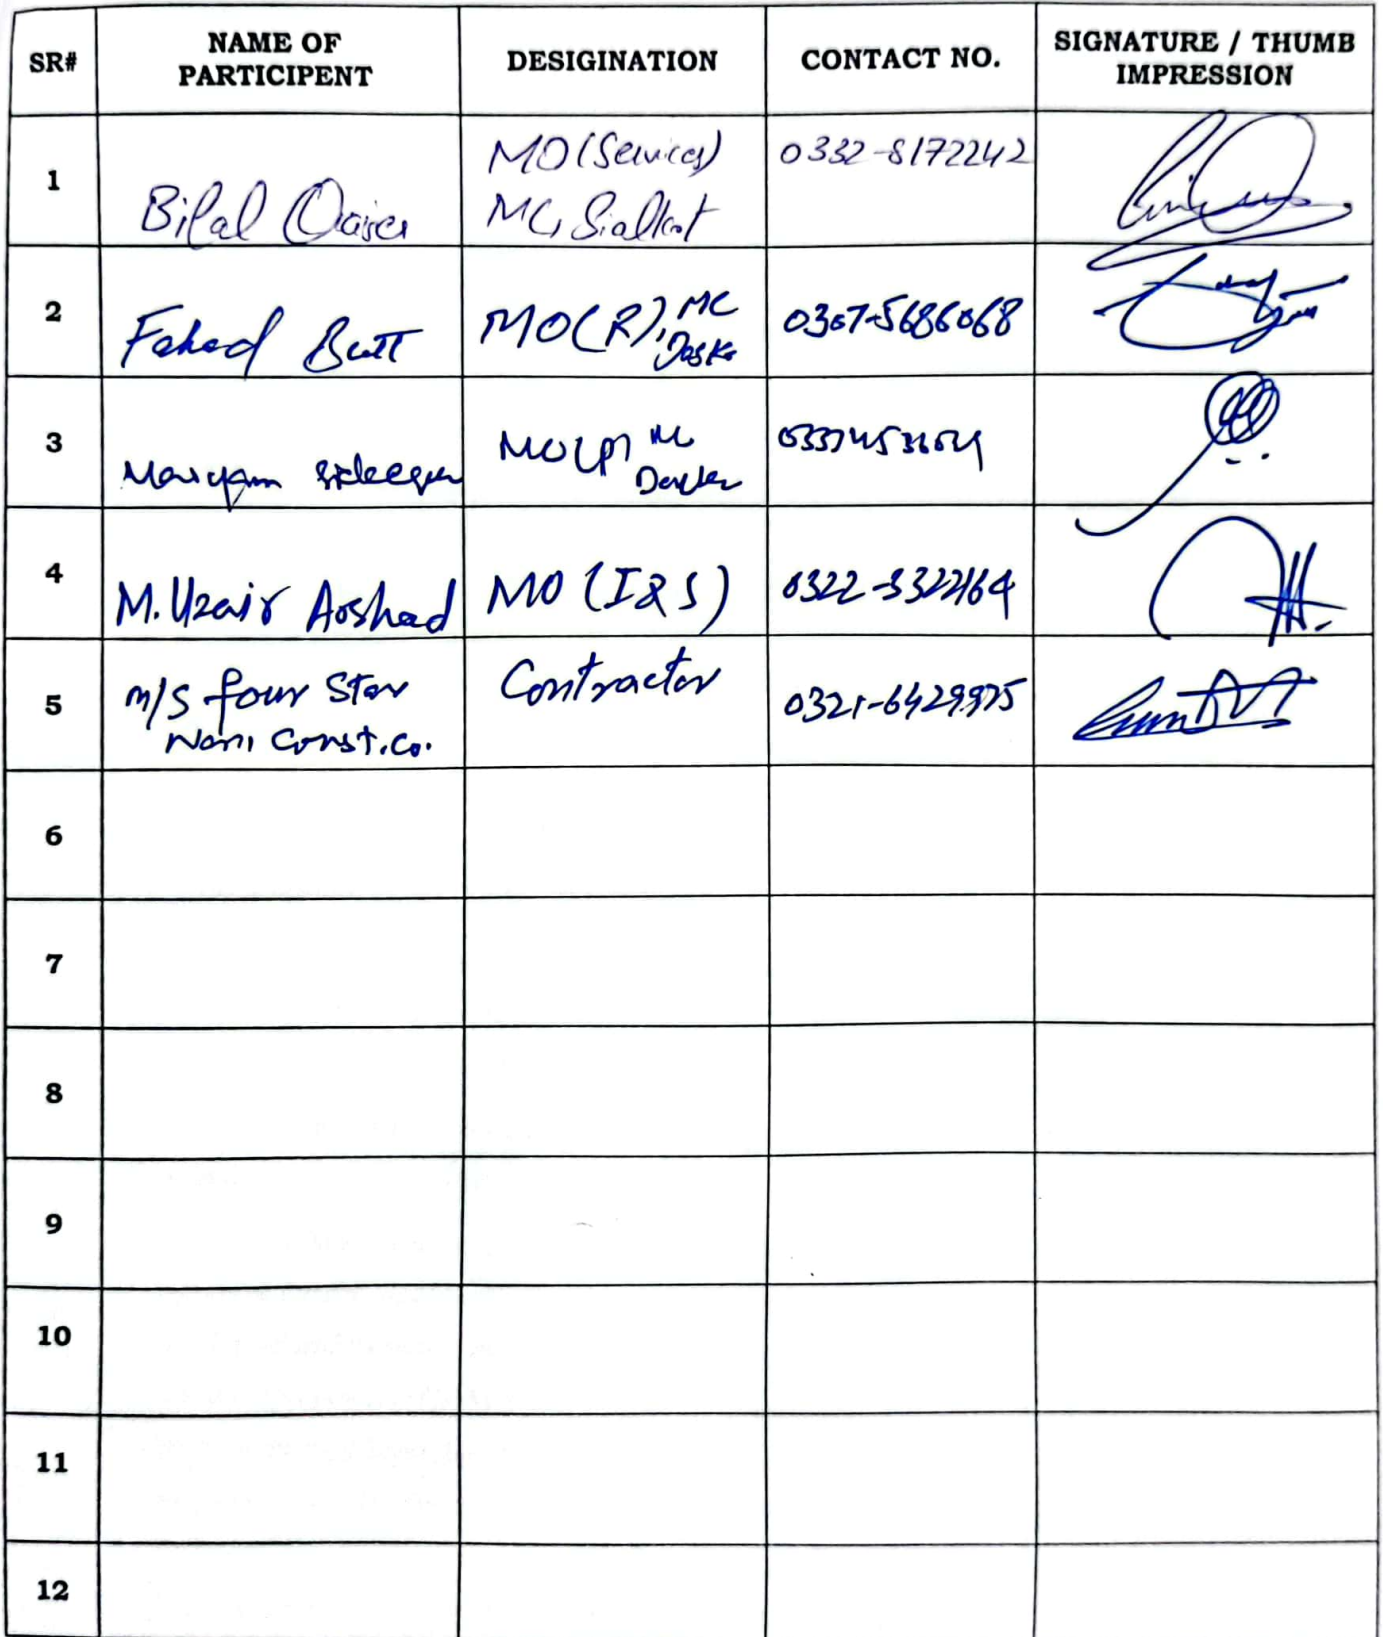 SR#
NAME OF
PARTICIPENT
DESIGINATION
CONTACT NO.
SIGNATURE / THUMB
IMPRESSION
1
Bilal Qaiser
MO (Services)
MC, Sialkot
0332-8172242
2
Fahad Butt
MO(R), MC
Daska
0307-5686068
3
Maryam
MO(P) MC
Daska
4
M. Uzair Arshad
MO (I&S)
0322-3322164
5
M/S four Star
Const. Co.
Contractor
0321-6429975
6
7
8
9
10
11
12